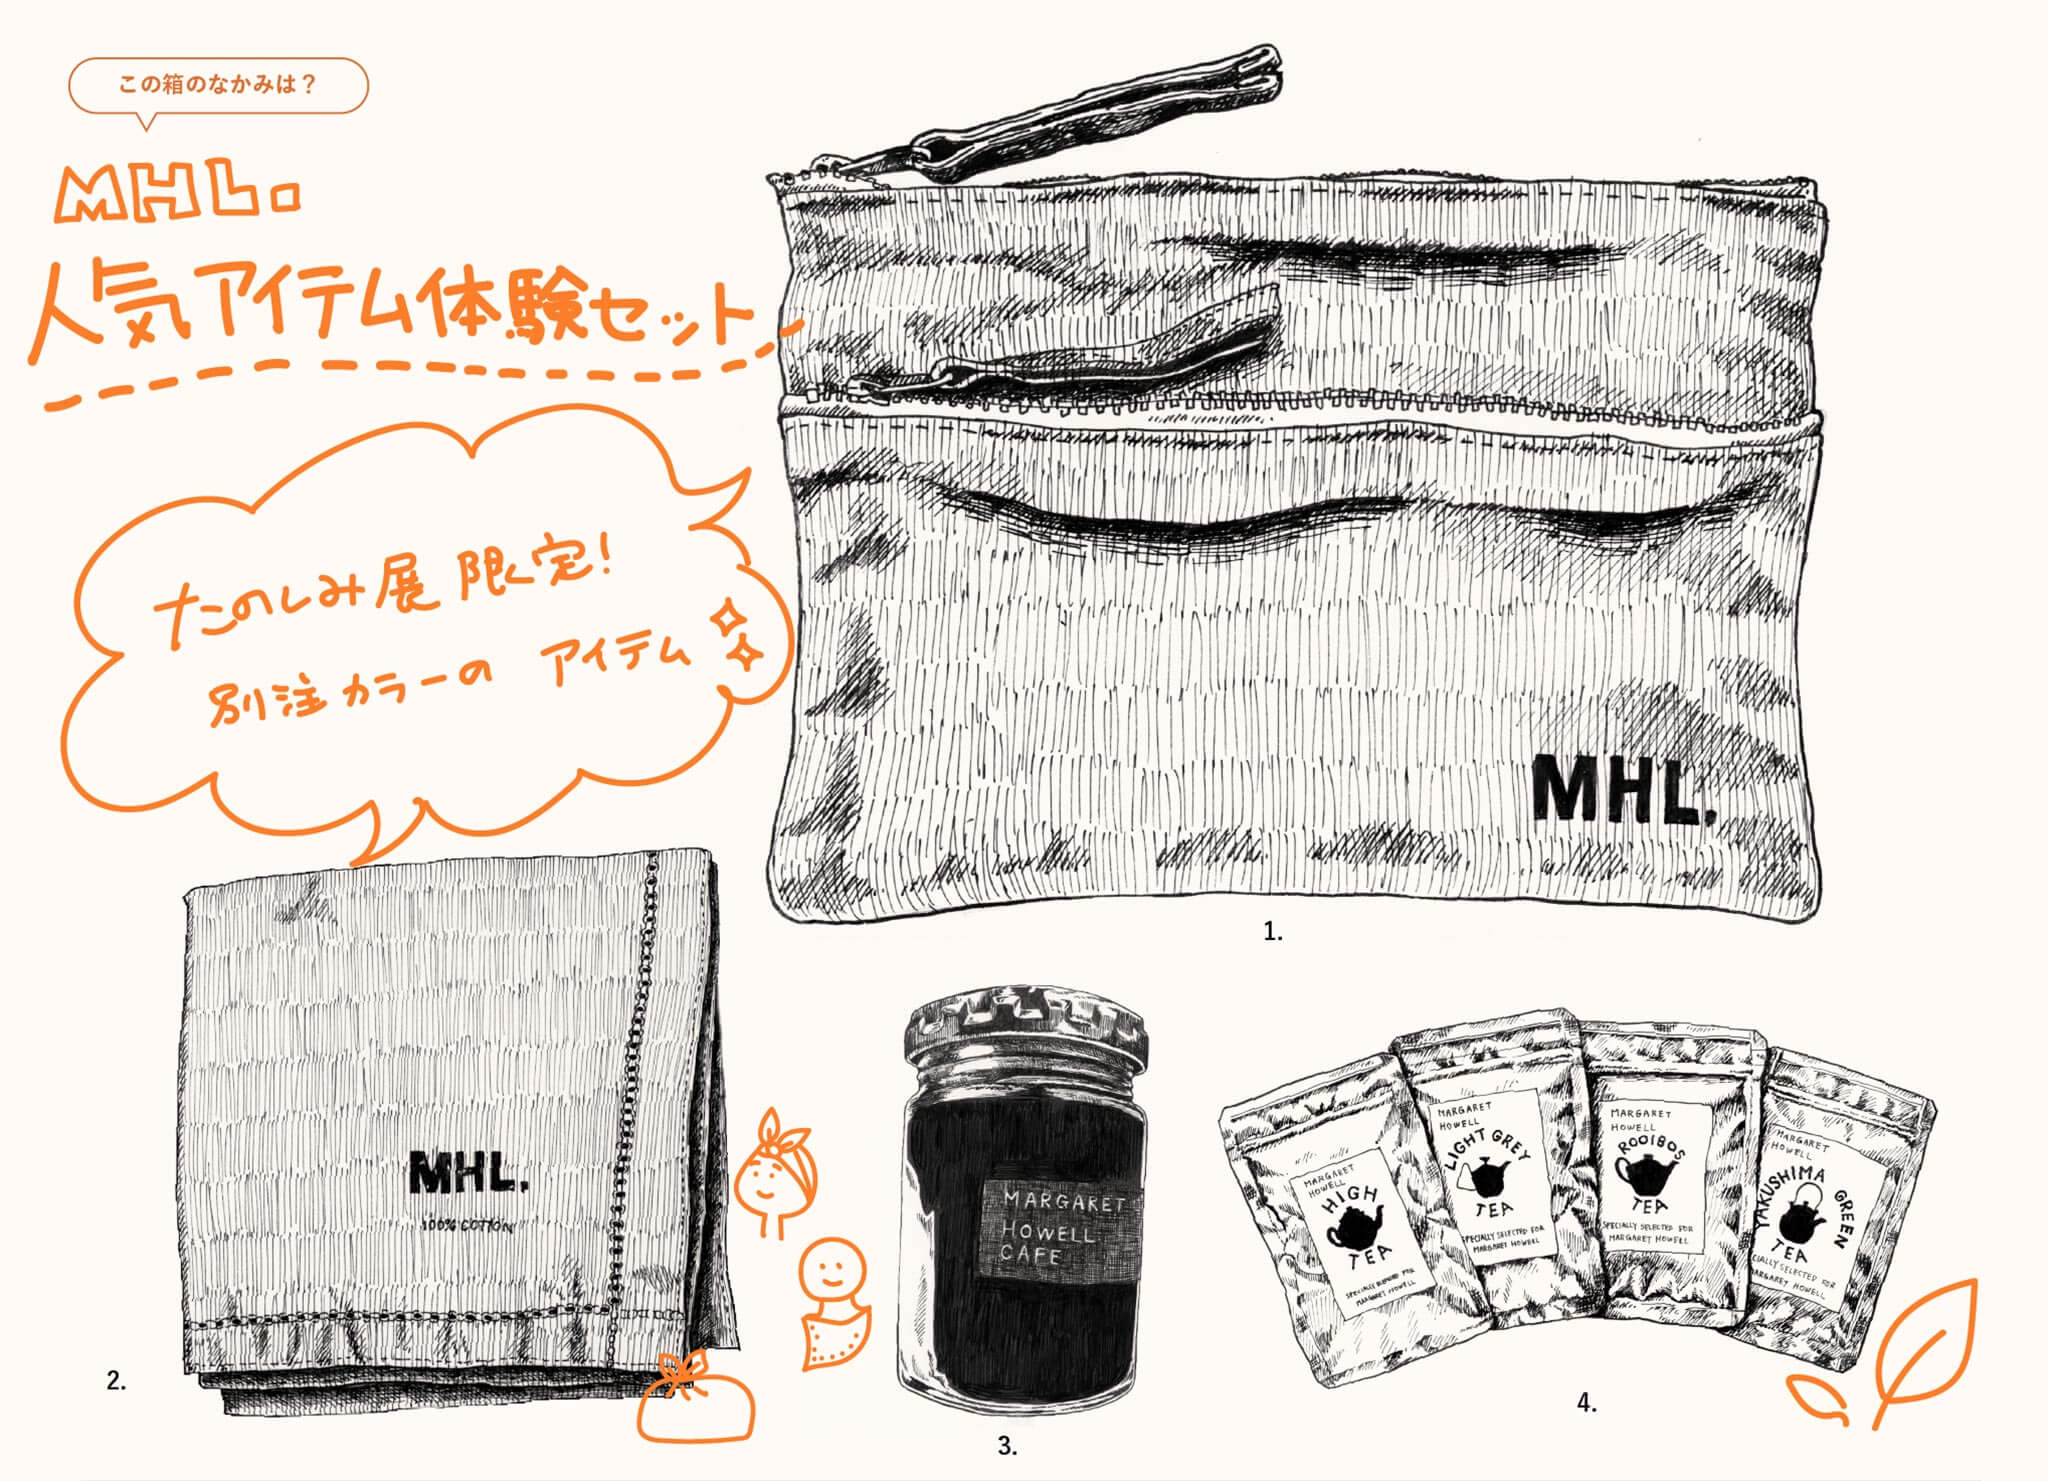 この箱のなかみは？
MHL.
人気アイテム体験セット
たのしみ展 限定!
別注カラーの アイテム
MHL.
1.
MHL.
100% COTTON
2.
MARGARET
HOWELL
CAFE
3.
MARGARET
HOWELL
HIGH
TEA
SPECIALLY BLENDED FOR
MARGARET HOWELL
MARGARET
HOWELL
LIGHT GREY
TEA
SPECIALLY SELECTED FOR
MARGARET HOWELL
MARGARET
HOWELL
ROOIBOS
TEA
SPECIALLY SELECTED FOR
MARGARET HOWELL
MARGARET
HOWELL
YAKUSHIMA GREEN
TEA
CIALLY SELECTED FOR
MARGARET HOWELL
4.